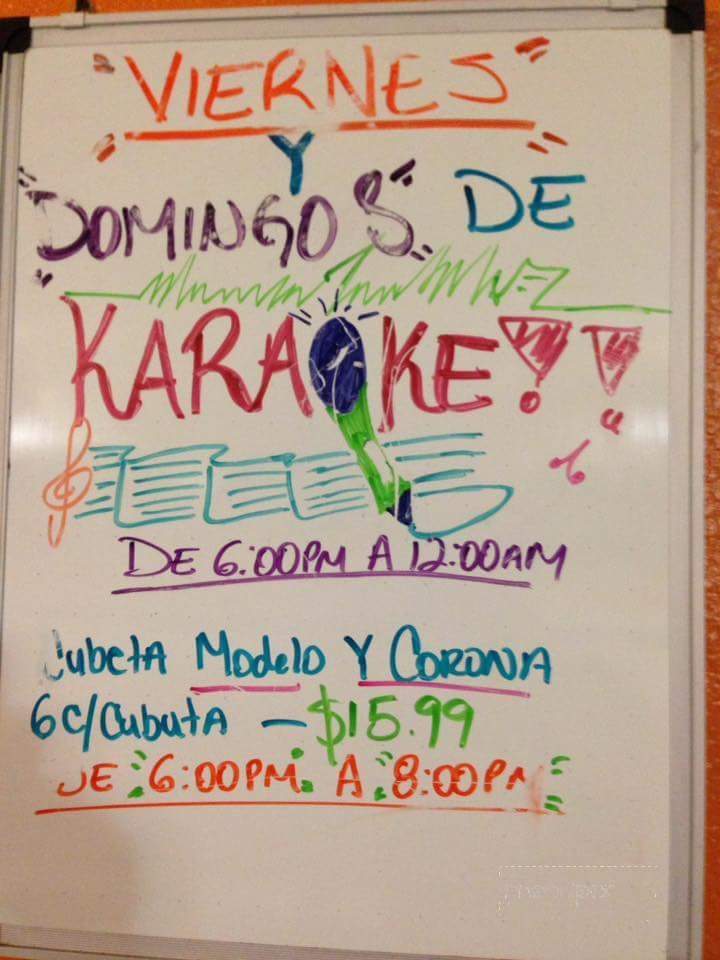 "VIERNES"
Y
"DOMINGOS" DE
KARAOKE!!
DE 6:00PM A 12:00AM
Cubeta Modelo Y CORONA
6 c/Cubuta — $15.99
DE 6:00PM A 8:00PM